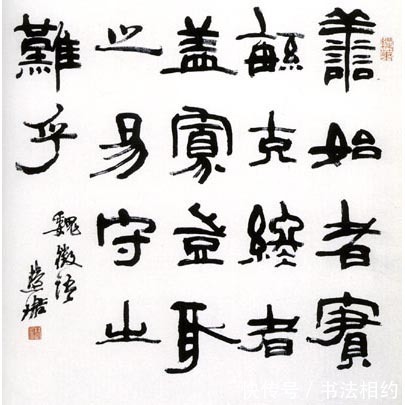 善始者實
緐克終者
蓋寡豈取
之易守之
難乎
魏徵語
快传号 / 书法相约